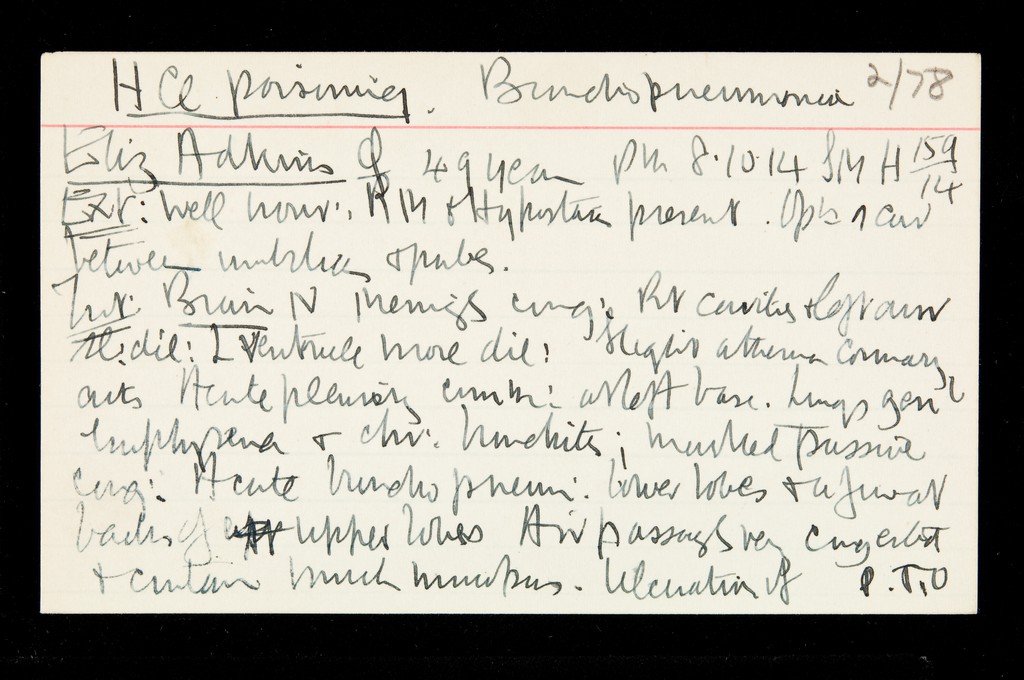 HCl poisoning. Bronchopneumonia 2/78
Eliz Adkins ♀ 49 years PM 8.10.14 SM H 159/14
Ext: Well nour:. RM & Hypostasis present. Opn scar
between umbilicus & pubes.
Int: Brain N Meninges cong: Rt cavities & left aur
sl: dil: L Ventricle more dil: Slight atheroma coronary
arts Acute pleurisy comm: at left base. Lungs genl
emphysema & chr: bronchitis; marked passive
cong: Acute broncho pneum: lower lobes & a few at
backs of upper lobes Air passages very congested
& contain much mucopus. Ulceration of P.T.O